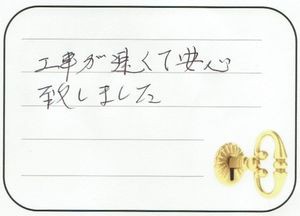 工事が速くて安心
致しました